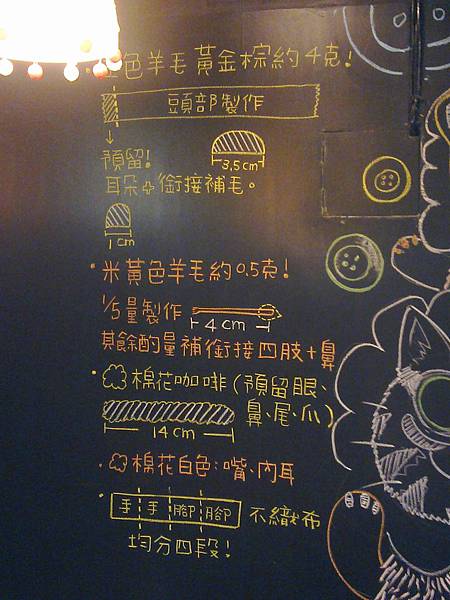 色羊毛 黃金棕約4克!
頭部製作
預留!
3.5cm
耳朵 銜接補毛。
1cm
米黃色羊毛約0.5克!
1/5量製作
4cm
其餘酌量補銜接四肢+鼻
棉花咖啡(預留眼、
鼻、尾、爪)
14cm
棉花白色:嘴、內耳
手 手 腳 腳 不織布
均分四段!